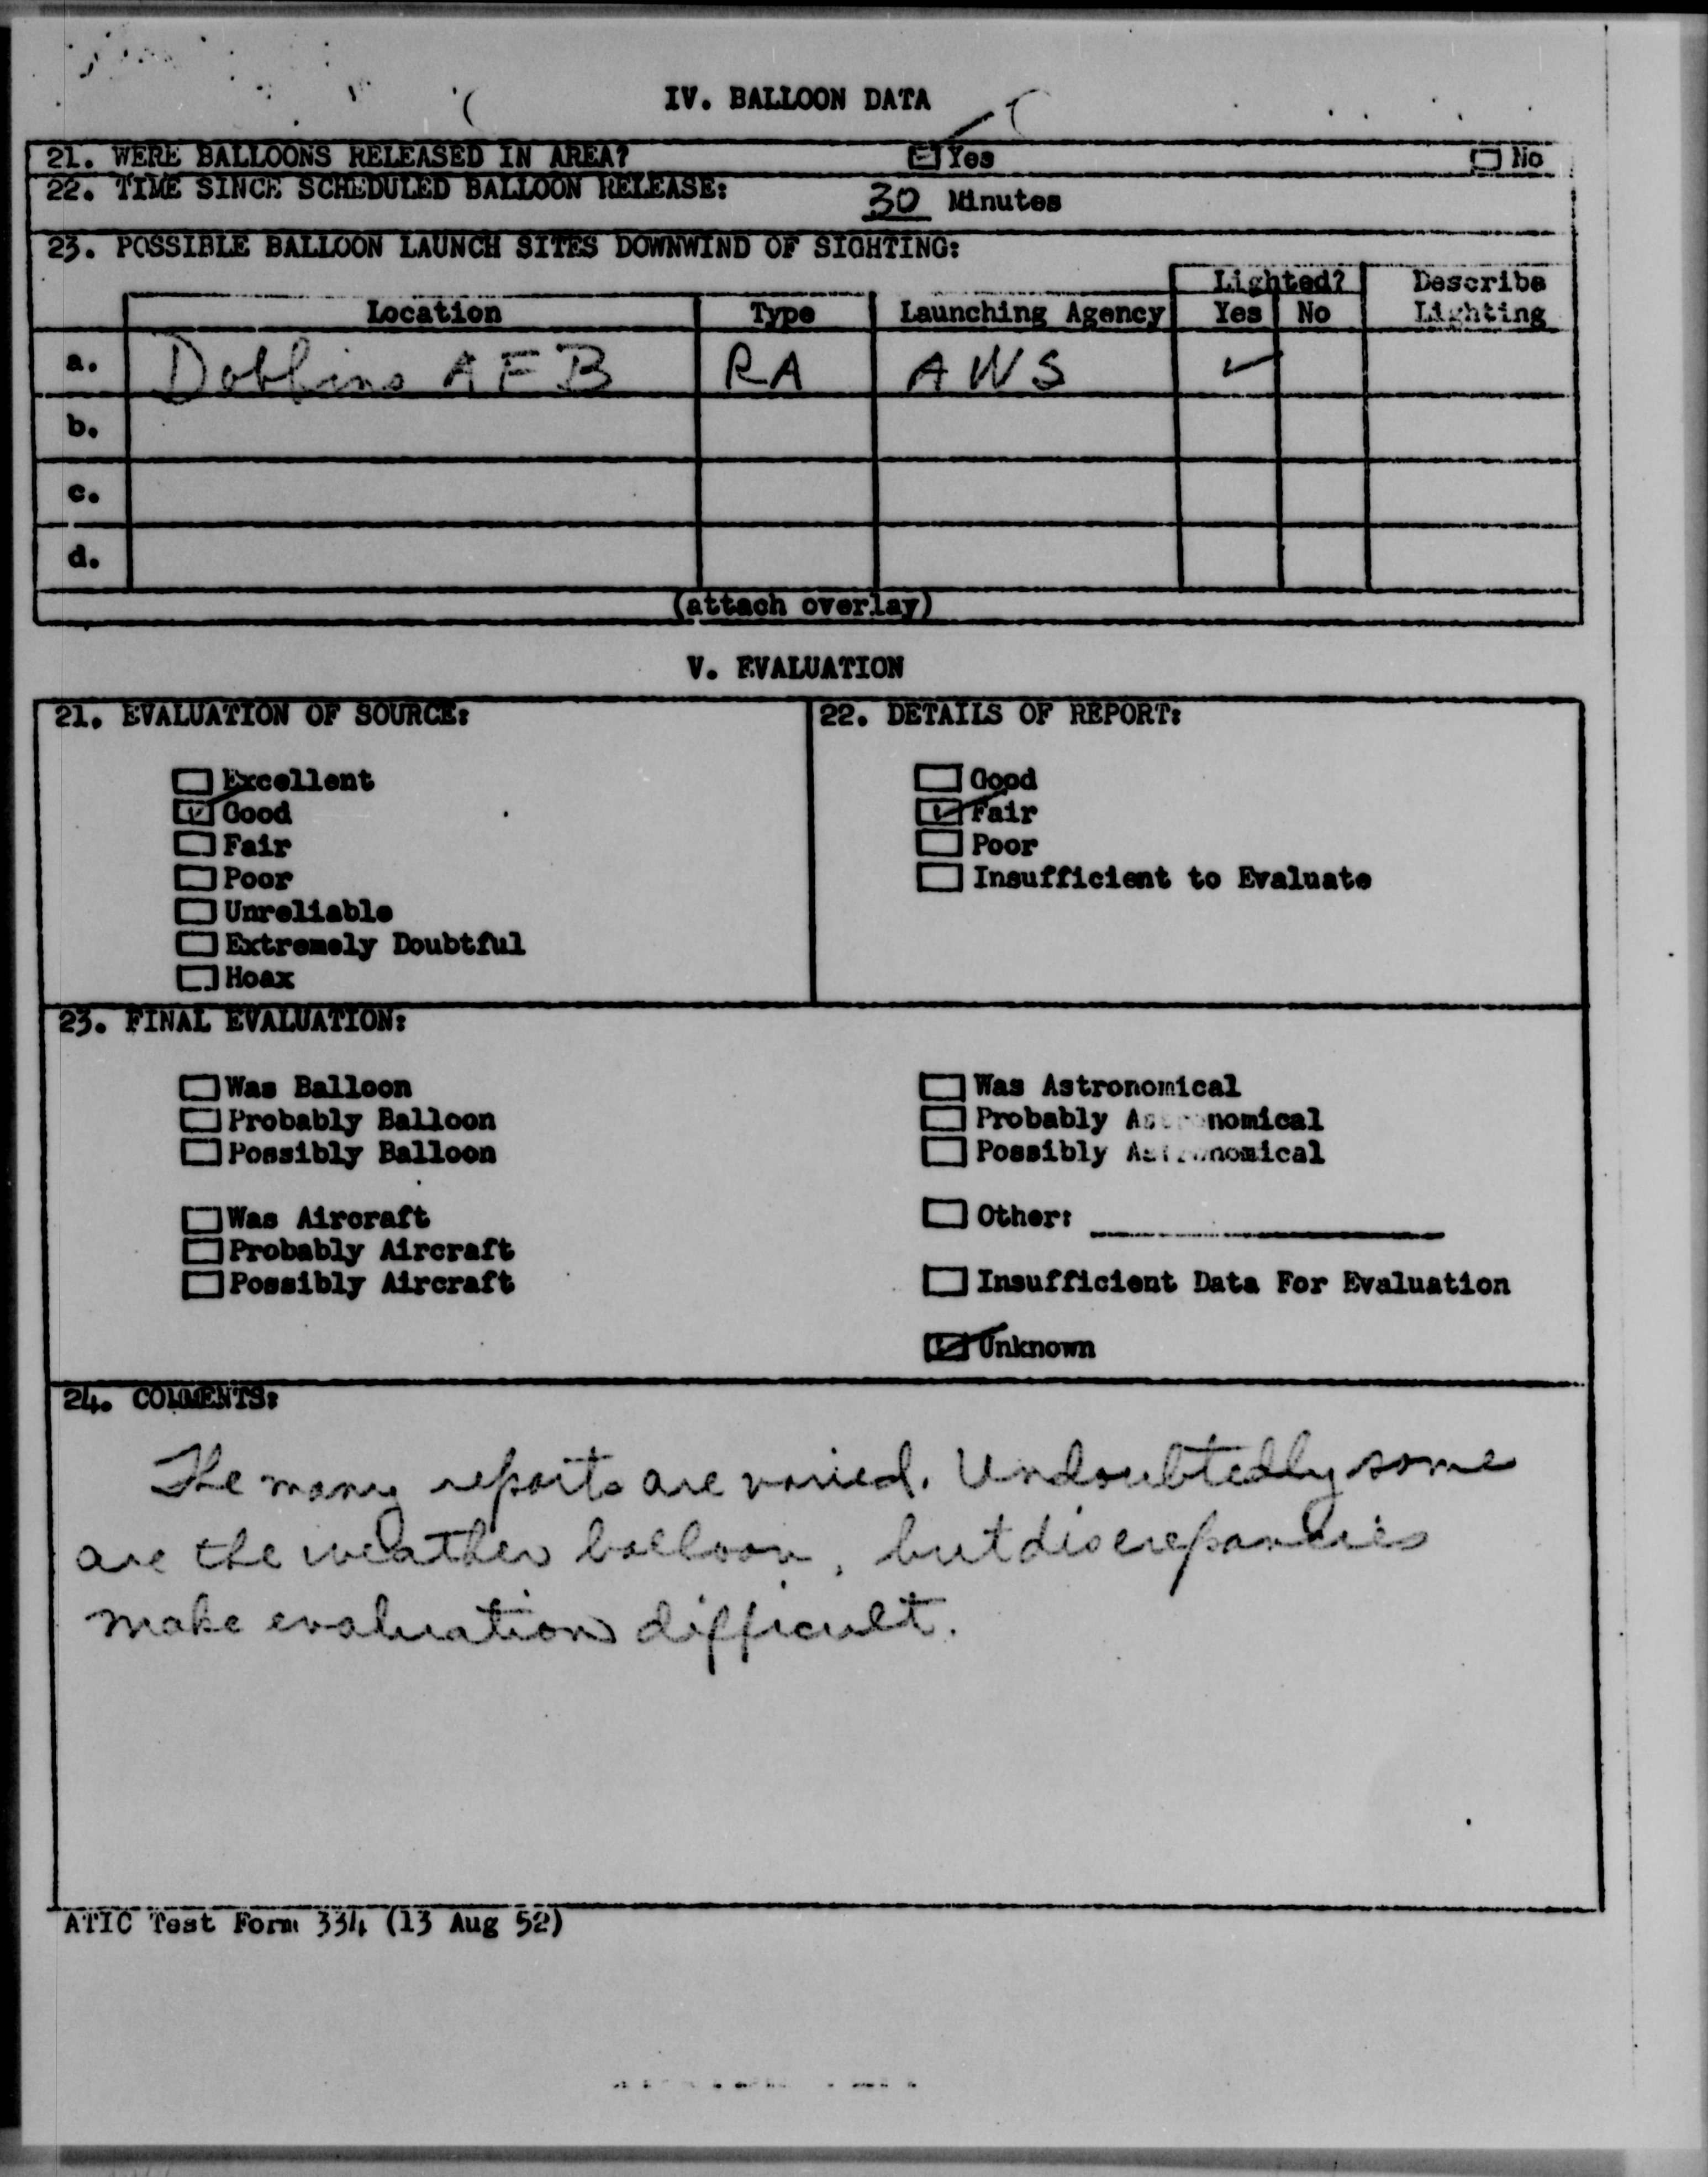 IV. BALLOON DATA
21. WERE BALLOONS RELEASED IN AREA? Yes No
22. TIME SINCE SCHEDULED BALLOON RELEASE: 30 Minutes
23. POSSIBLE BALLOON LAUNCH SITES DOWNWIND OF SIGHTING:
Lighted? Describe
Location Type Launching Agency Yes No Lighting
a. Dobbins AFB RA AWS ✓
b.
c.
d.
(attach overlay)
V. EVALUATION
21. EVALUATION OF SOURCE: 22. DETAILS OF REPORT:
Excellent Good
Good Fair
Fair Poor
Poor Insufficient to Evaluate
Unreliable
Extremely Doubtful
Hoax
23. FINAL EVALUATION:
Was Balloon Was Astronomical
Probably Balloon Probably Astronomical
Possibly Balloon Possibly Astronomical
Was Aircraft Other:
Probably Aircraft
Possibly Aircraft Insufficient Data For Evaluation
Unknown
24. COMMENTS:
The many reports are varied. Undoubtedly some
are the weather balloon, but discrepancies
make evaluation difficult.
ATIC Test Form 334 (13 Aug 52)